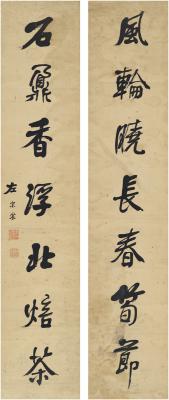 風輪曉長春筍節
石鼎香浮北焙茶
左宗棠